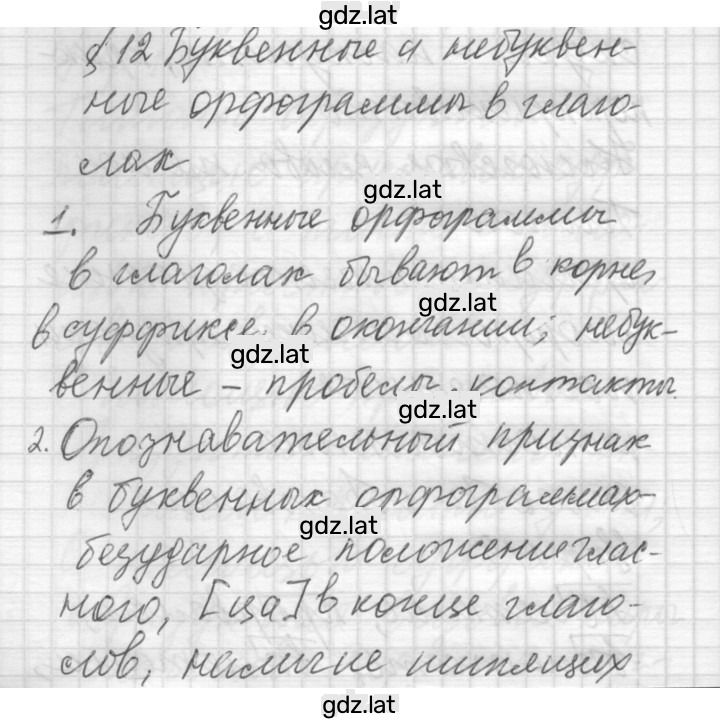 gdz.lat
§ 12 Буквенные и небуквен-
ные орфограммы в глаго-
лах
gdz.lat
1. Буквенные орфограммы
в глаголах бывают в корне,
gdz.lat
в суффиксе, в окончании; небук-
gdz.lat
венные – пробелы, контакты.
gdz.lat
2. Опознавательный признак
в буквенных орфограммах-
gdz.lat
безударное положение глас-
ного, [ца] в конце глаго-
лов, наличие шипящих
gdz.lat